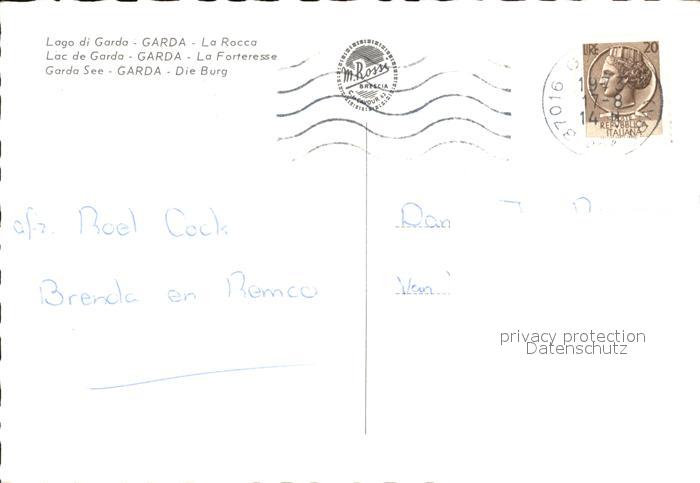 Lago di Garda - GARDA - La Rocca
Lac de Garda - GARDA - La Forteresse
Garda See - GARDA - Die Burg
M. Rossi
BRESCIA
LIRE 20
POSTE
REPVBBLICA
ITALIANA
37016
afz. Roel Cock
Brenda en Remco
Dan
Van
privacy protection
Datenschutz